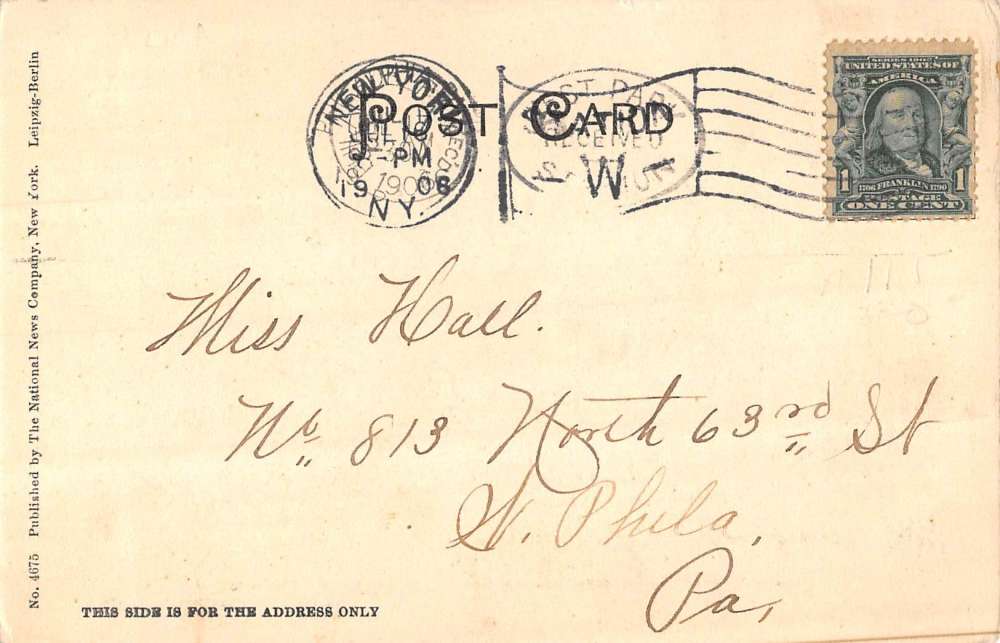 No. 4675 Published by The National News Company, New York. Leipzig-Berlin
POST CARD
NEW YORK
-PM
1906
N.Y.
RECEIVED
W
SERIES 1902
UNITED STATES OF
AMERICA
1 1706 FRANKLIN 1790 1
POSTAGE
ONE CENT
Miss Hall.
No. 813 North 63rd St
W. Phila,
Pa,
THIS SIDE IS FOR THE ADDRESS ONLY